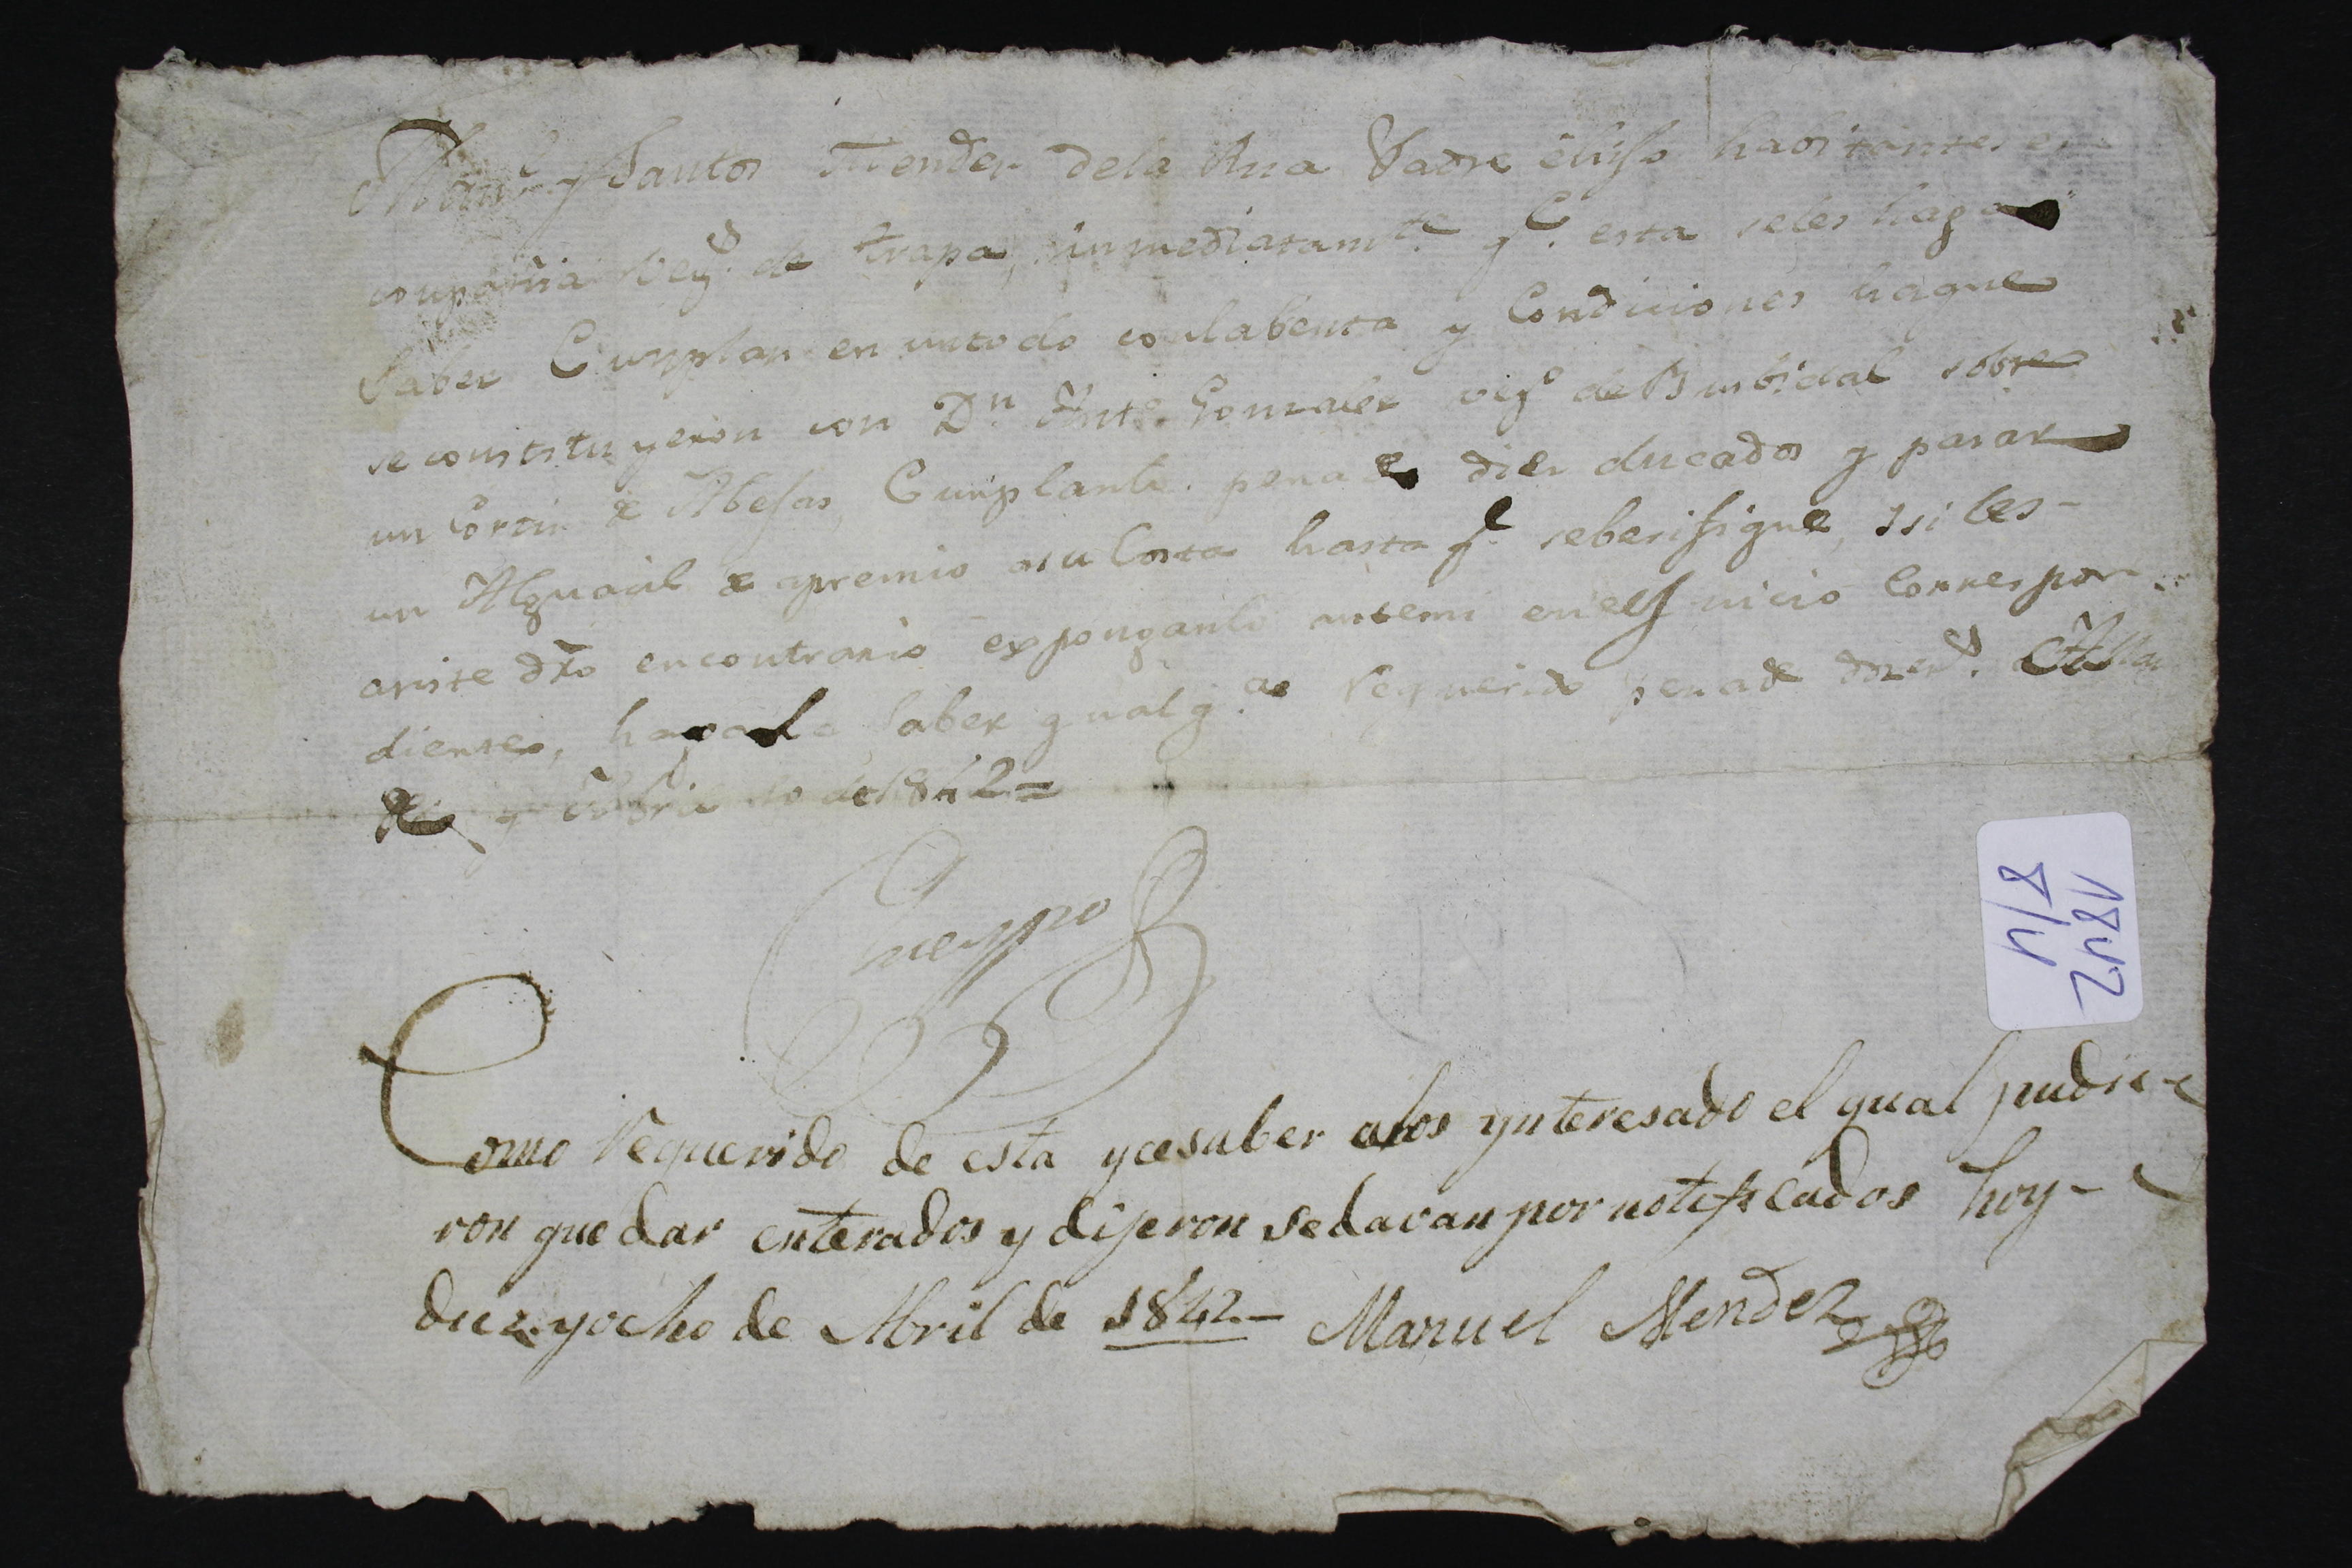 Man.l y Santos Mendez dela Rua Padre ehijo habitantes en
compañia Vez.s de trapa, inmediatam.te q.e esta seles haga
saber Cumplan en untodo conlabenta y Condiciones haque
se constituyeron con D.n Ant.o Gonzalez vez.o de Busbidal sobre
un Cortin de Abejas, Cumplanlo pena de diez ducados y pasar
un Alguacil de apremio asu Costa hasta q.e seberifique, ysi les-
asiste dro encontrario expónganlo antemi enelJuicio Correspon
dientes, hagasele saber qualq.ra Requerido penade dosd.s
y Abril 10 de 1842=
Crespo
Como Requerido de esta yce saber alos ynteresado el qual pudie-
ron quedar enterados y dijeron sedavan por notificados hoy-
diez yocho de Abril de 1842- Manuel Mendez
1842
8/4